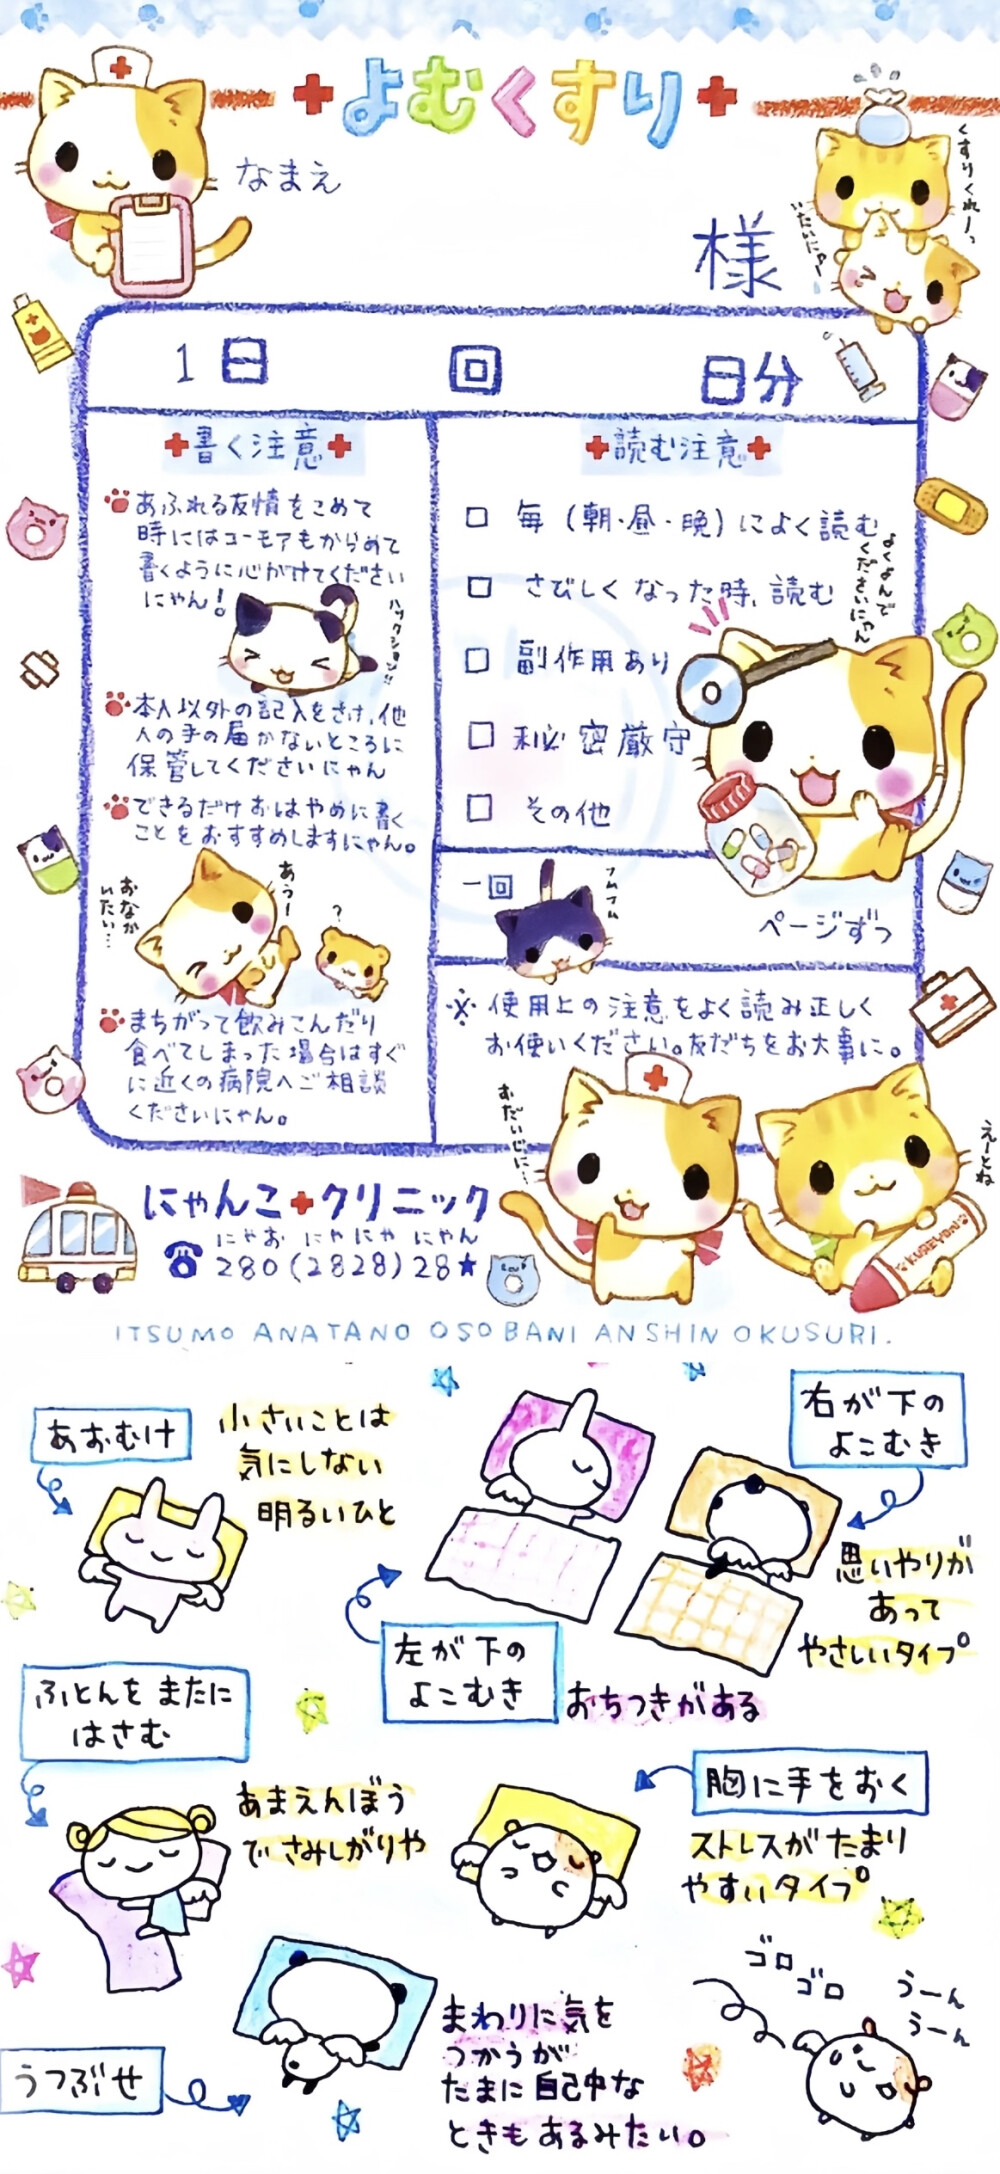 よむくすり
なまえ
様
くすりくれーっ
いたいにゃー
1日 回 日分
書く注意
あふれる友情をこめて
時にはユーモアもからめて
書くように心がけてください
にゃん!
ハックション!!
本人以外の記入をさけ、他
人の手の届かないところに
保管してくださいにゃん
できるだけおはやめに書く
ことをおすすめしますにゃん。
あうー
おなか
いたい…
?
まちがって飲みこんだり
食べてしまった場合はすぐ
に近くの病院へご相談
くださいにゃん。
読む注意
毎(朝・昼・晩)によく読む
さびしくなった時、読む
副作用あり
秘密厳守
その他
よくよんで
くださいにゃん
一回
フムフム
ページずつ
※使用上の注意をよく読み正しく
お使いください。友だちをお大事に。
おだいじに…
えーとね
KUREYON
にゃんこ+クリニック
にゃお にゃにゃ にゃん
280(2828)28★
ITSUMO ANATANO OSOBANI ANSHIN OKUSURI.
あおむけ
小さいことは
気にしない
明るいひと
右が下の
よこむき
思いやりが
あって
やさしいタイプ
左が下の
よこむき
おちつきがある
ふとんをまたに
はさむ
あまえんぼう
でさみしがりや
胸に手をおく
ストレスがたまり
やすいタイプ
うつぶせ
まわりに気を
つかうが
たまに自己中な
ときもあるみたい。
ゴロ
ゴロ
うーん
うーん